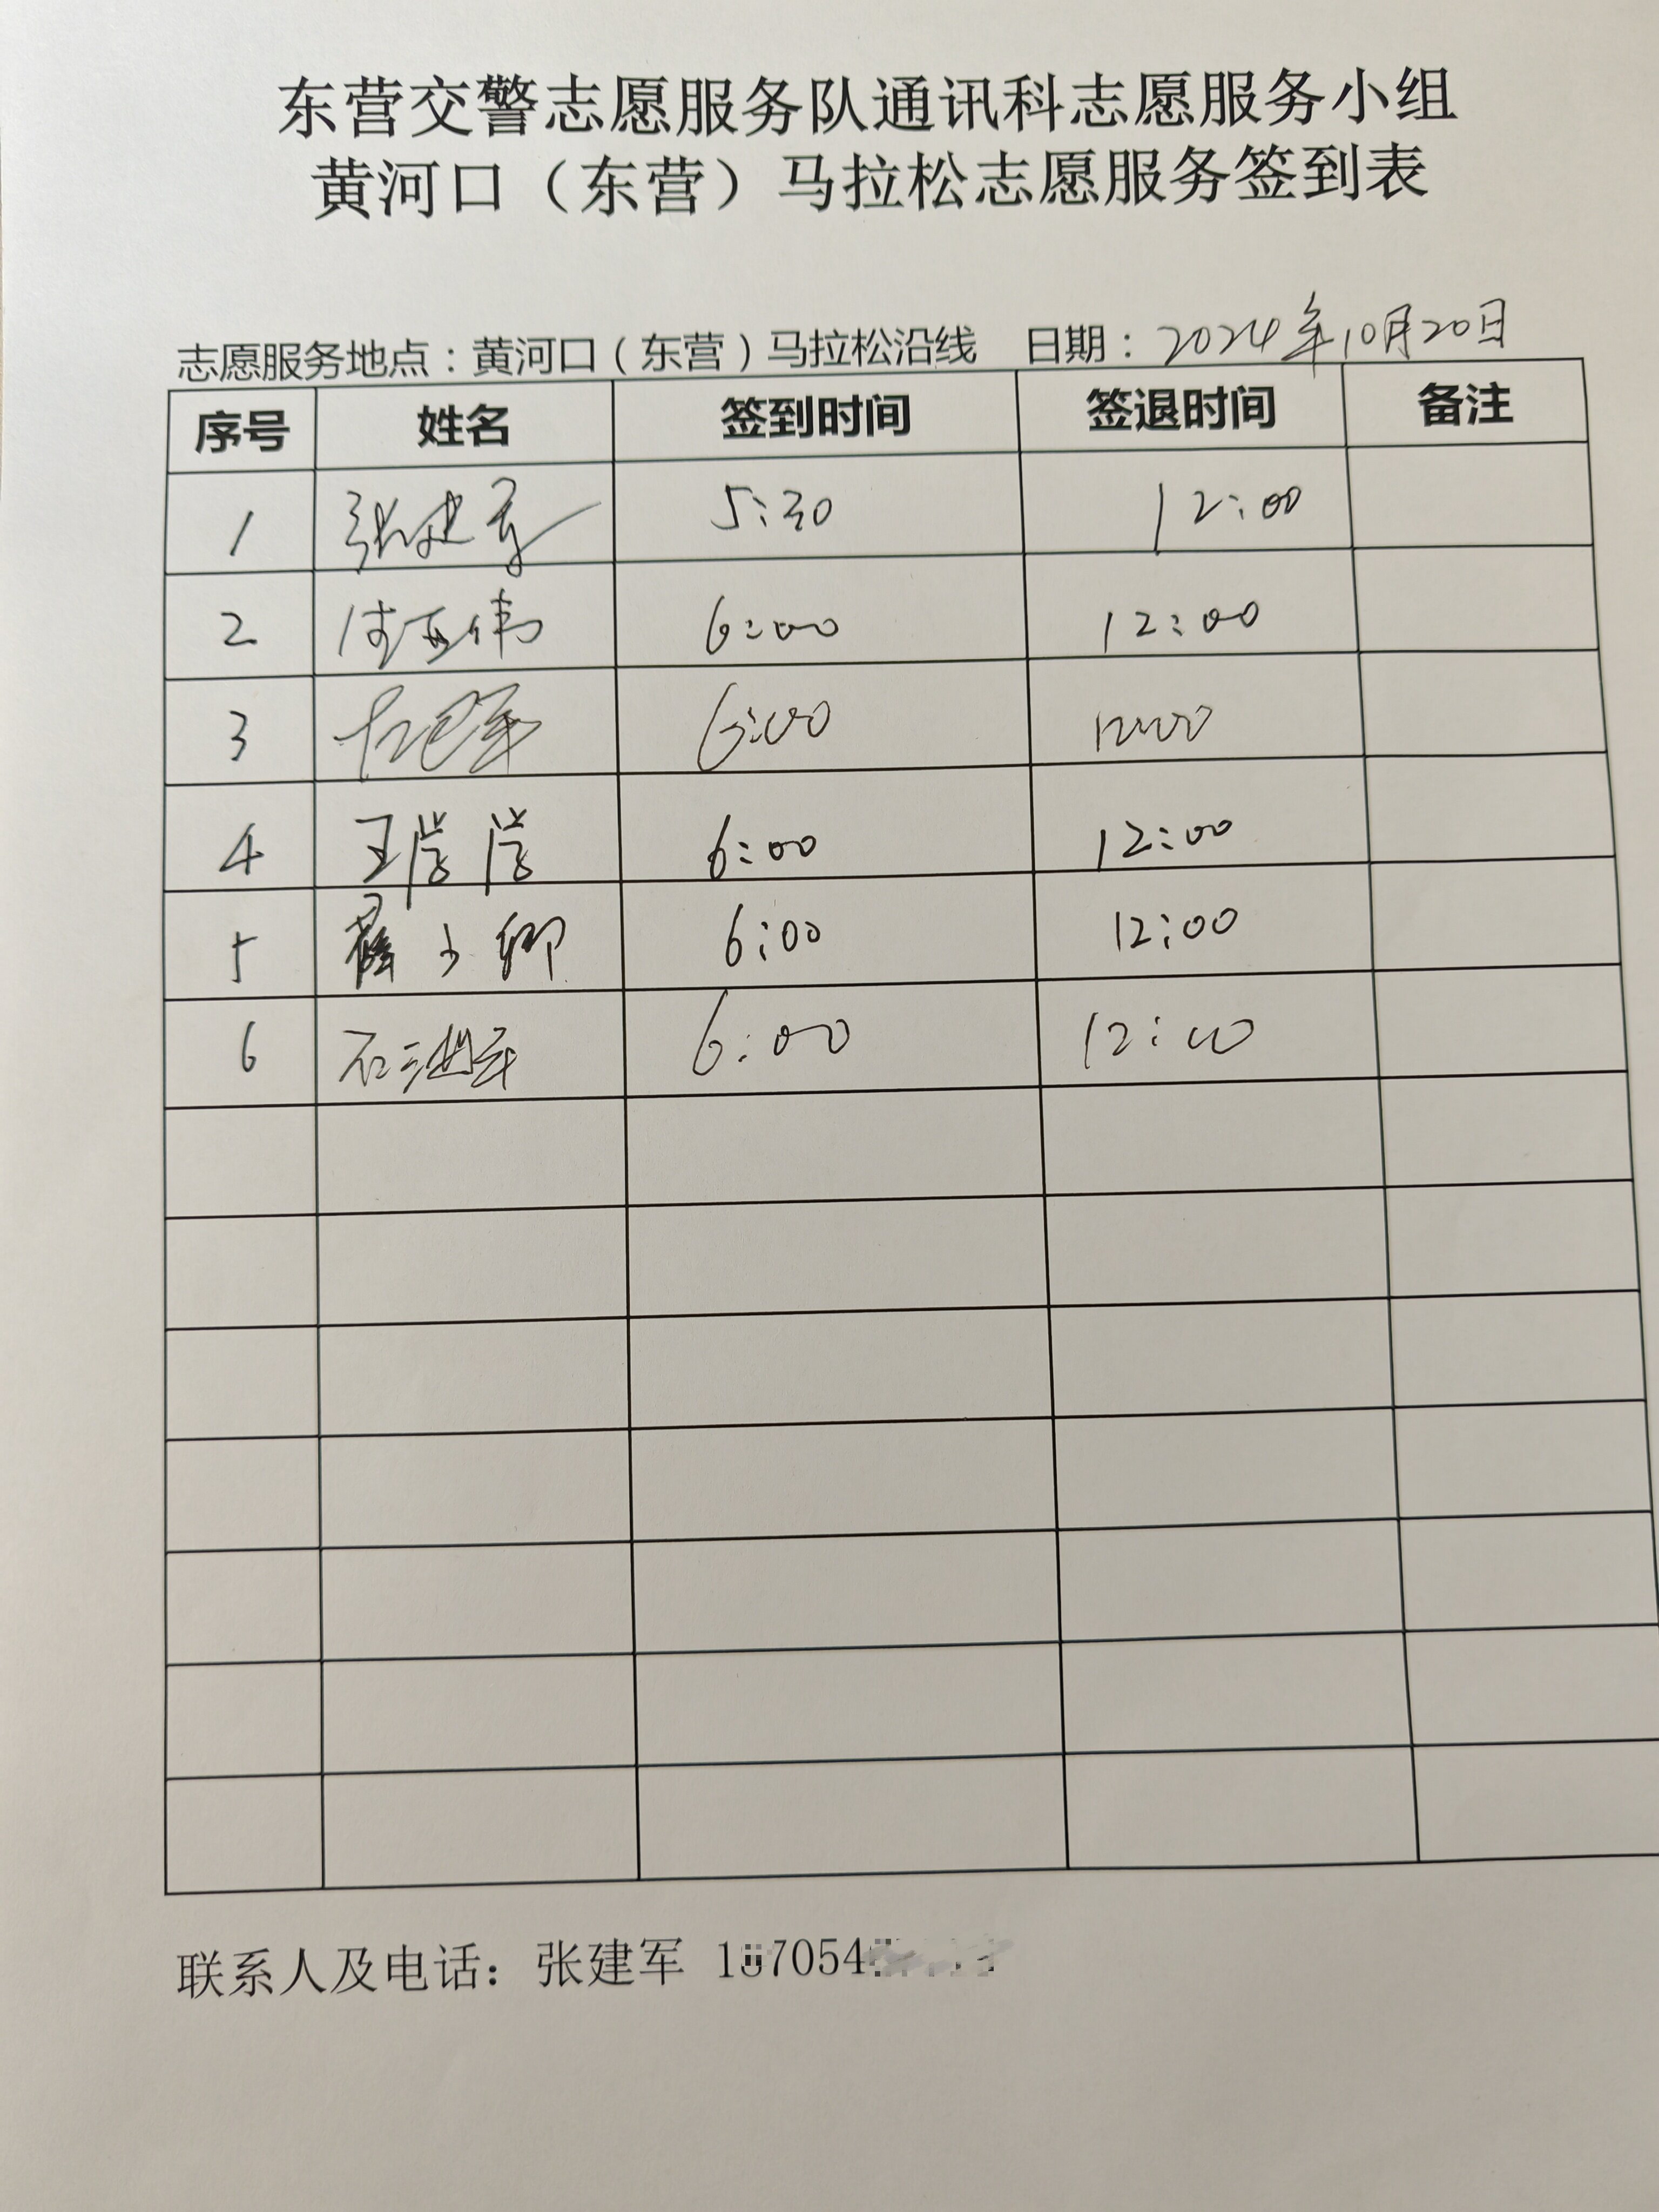 东营交警志愿服务队通讯科志愿服务小组
黄河口（东营）马拉松志愿服务签到表
志愿服务地点：黄河口（东营）马拉松沿线 日期：2024年10月20日
序号 姓名 签到时间 签退时间 备注
1 张建军 5:30 12:00
2 6:00 12:00
3 6:00 12:00
4 6:00 12:00
5 6:00 12:00
6 6:00 12:00
联系人及电话：张建军